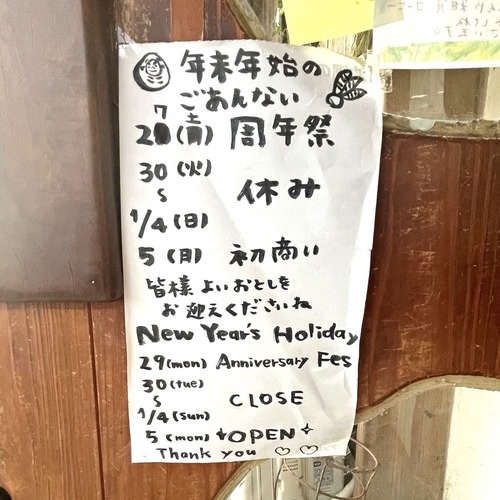 年末年始の
ごあんない
27(土) 周年祭
30(火)
〜 休み
1/4(日)
5(日) 初商い
皆様よいおとしを
お迎えくださいね
New Year's Holiday
29(mon) Anniversary Fes
30(tue)
〜 CLOSE
1/4(sun)
5(mon) OPEN
Thank you ♡♡